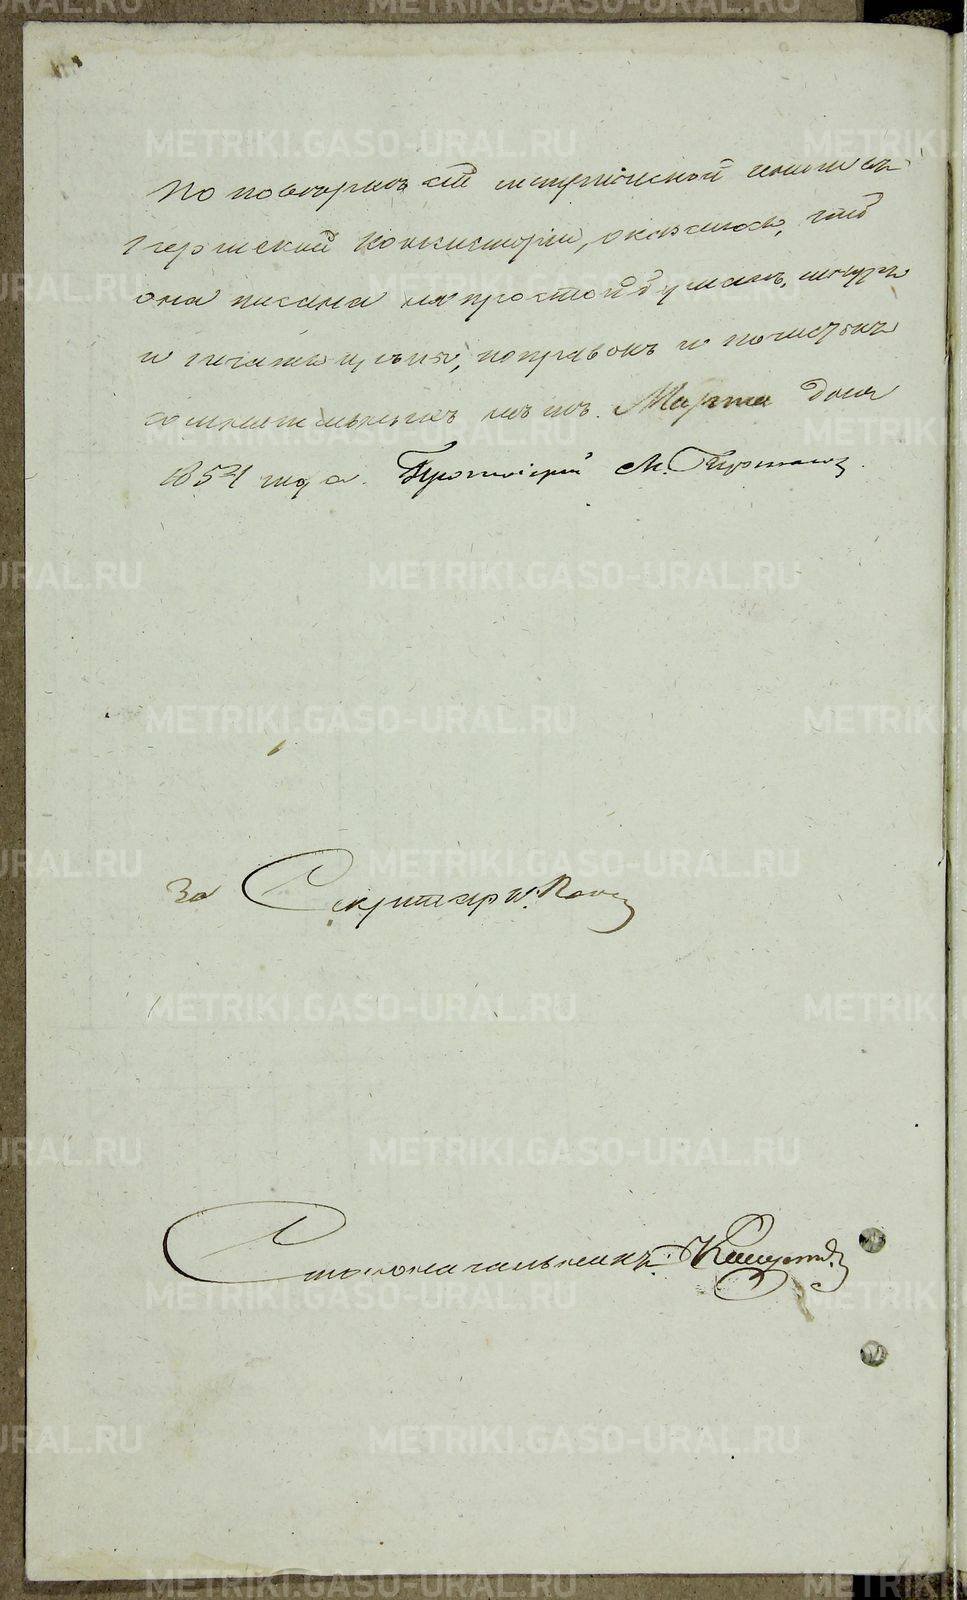 По поверкѣ сей метрической книги въ
Пермской Консисторіи, оказалось, что
она писана на простой бумагѣ, шнуръ
и печать цѣлы, поправокъ и почистокъ
сомнительныхъ нѣтъ. Марта дня
1854 года. Протоіерей М.
За Секретаря
Столоначальникъ
METRIKI.GASO-URAL.RU